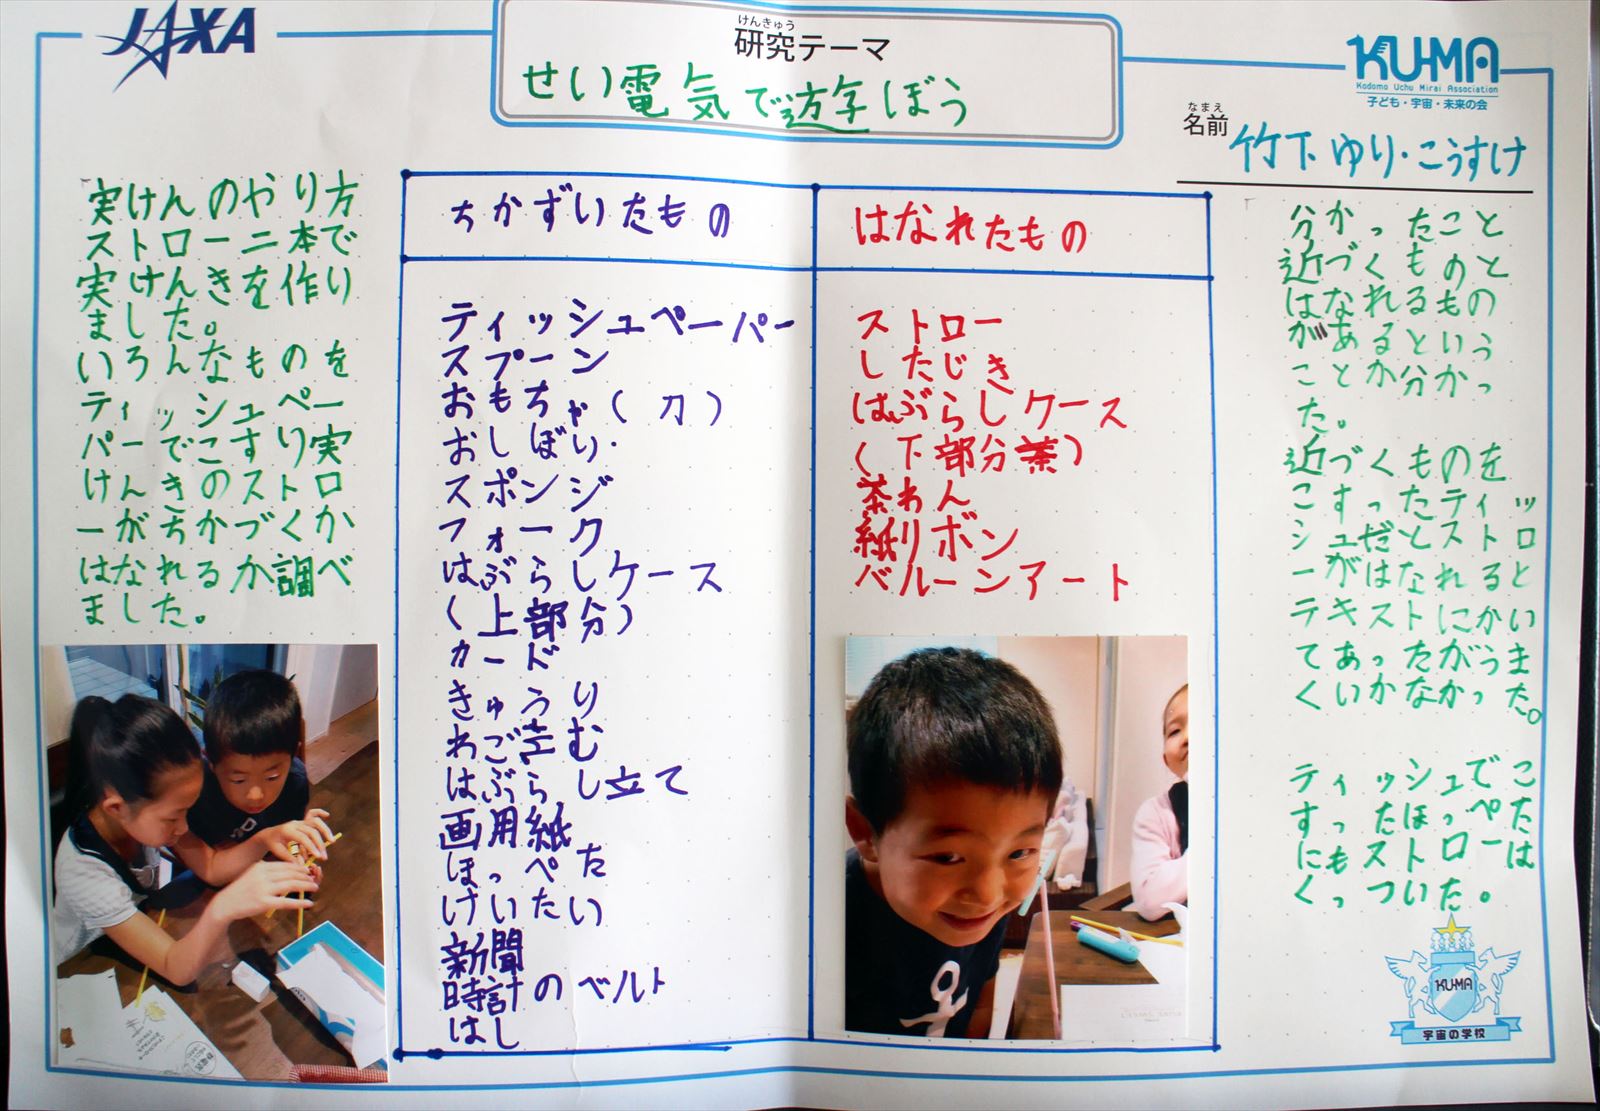 JAXA
けんきゅう
研究テーマ
せい電気で遊ぼう
KU-MA
Kodomo Uchu Mirai Association
子ども・宇宙・未来の会
なまえ
名前
竹下 ゆり・こうすけ
実けんのやり方
ストロー二本で
実けんきを作り
ました。
いろんなものを
ティッシュペー
パーでこすり実
けんきのストロ
ーがちかづくか
はなれるか調べ
ました。
ちかずいたもの
ティッシュペーパー
スプーン
おもちゃ(刀)
おしぼり
スポンジ
フォーク
はぶらしケース
(上部分)
カード
きゅうり
わごむ
はぶらし立て
画用紙
ほっぺた
けいたい
新聞
時計のベルト
はし
はなれたもの
ストロー
したじき
はぶらしケース
(下部分)
茶わん
紙リボン
バルーンアート
分かったこと
近づくものと
はなれるもの
があるという
ことか分かっ
た。
近づくものを
こすったティッ
シュだとストロ
ーがはなれると
テキストにかい
てあったがうま
くいかなかった。
ティッシュでこ
すったほっぺた
にもストローは
くっついた。
KU-MA
宇宙の学校